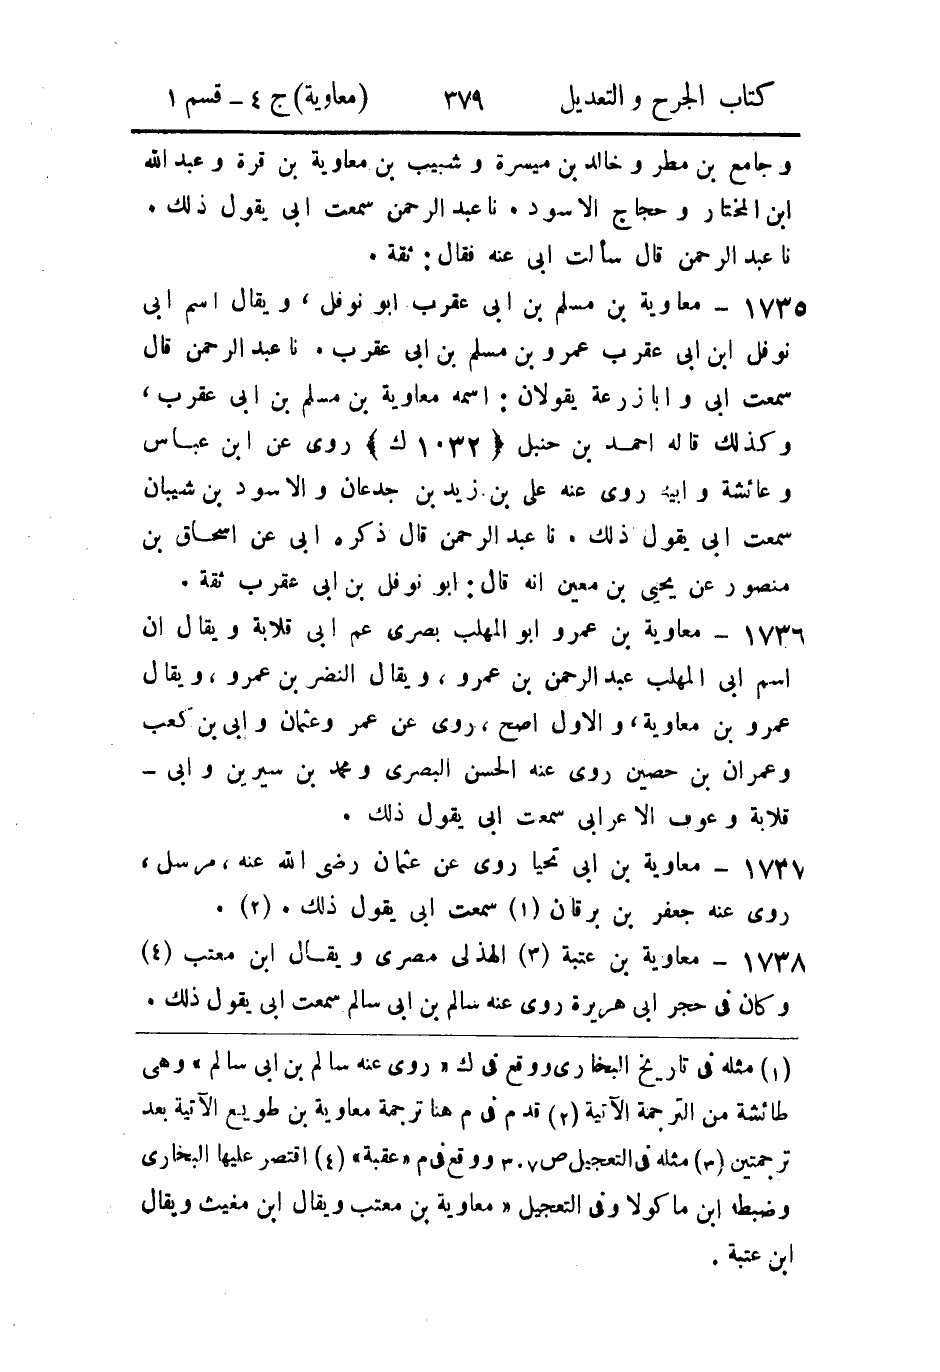 كتاب الجرح والتعديل ٣٧٩ (معاوية) ج ٤ - قسم ١
و جامع بن مطر و خالد بن ميسرة و شبيب بن معاوية بن قرة و عبد الله
ابن المختار و حجاج الاسود . نا عبد الرحمن سمعت ابى يقول ذلك .
نا عبد الرحمن قال سألت ابى عنه فقال : ثقة .
١٧٣٥ - معاوية بن مسلم بن ابى عقرب ابو نوفل ، و يقال اسم ابى
نوفل ابن ابى عقرب عمرو بن مسلم بن ابى عقرب . نا عبد الرحمن قال
سمعت ابى و ابا زرعة يقولان : اسمه معاوية بن مسلم بن ابى عقرب ،
و كذلك قاله احمد بن حنبل ﴿ ١٠٣٢ ك ﴾ روى عن ابن عباس
و عائشة و ابيه روى عنه على بن زيد بن جدعان و الاسود بن شيبان
سمعت ابى يقول ذلك . نا عبد الرحمن قال ذكره ابى عن اسحاق بن
منصور عن يحيى بن معين انه قال : ابو نوفل بن ابى عقرب ثقة .
١٧٣٦ - معاوية بن عمرو ابو المهلب بصرى عم ابى قلابة و يقال ان
اسم ابى المهلب عبد الرحمن بن عمرو ، و يقال النضر بن عمرو ، و يقال
عمرو بن معاوية ، و الاول اصح ، روى عن عمر وعثمان و ابى بن كعب
وعمران بن حصين روى عنه الحسن البصرى و محمد بن سيرين و ابى -
قلابة و عوف الاعرابى سمعت ابى يقول ذلك .
١٧٣٧ - معاوية بن ابى تحيا روى عن عثمان رضى الله عنه ، مرسل ،
روى عنه جعفر بن برقان (١) سمعت ابى يقول ذلك . (٢) .
١٧٣٨ - معاوية بن عتبة (٣) الهذلى مصرى و يقال ابن معتب (٤)
و كان فى حجر ابى هريرة روى عنه سالم بن ابى سالم سمعت ابى يقول ذلك .
(١) مثله فى تاريخ البخارى ووقع فى ك « روى عنه سالم بن ابى سالم » وهى
طائشة من الترجمة الآتية (٢) قدم فى م هنا ترجمة معاوية بن طويع الآتية بعد
ترجمتين (٣) مثله فى التعجيل ص ٣٠٧ ووقع فى م « عقبة » (٤) اقتصر عليها البخارى
وضبطه ابن ماكولا وفى التعجيل « معاوية بن معتب ويقال ابن مغيث ويقال
ابن عتبة .